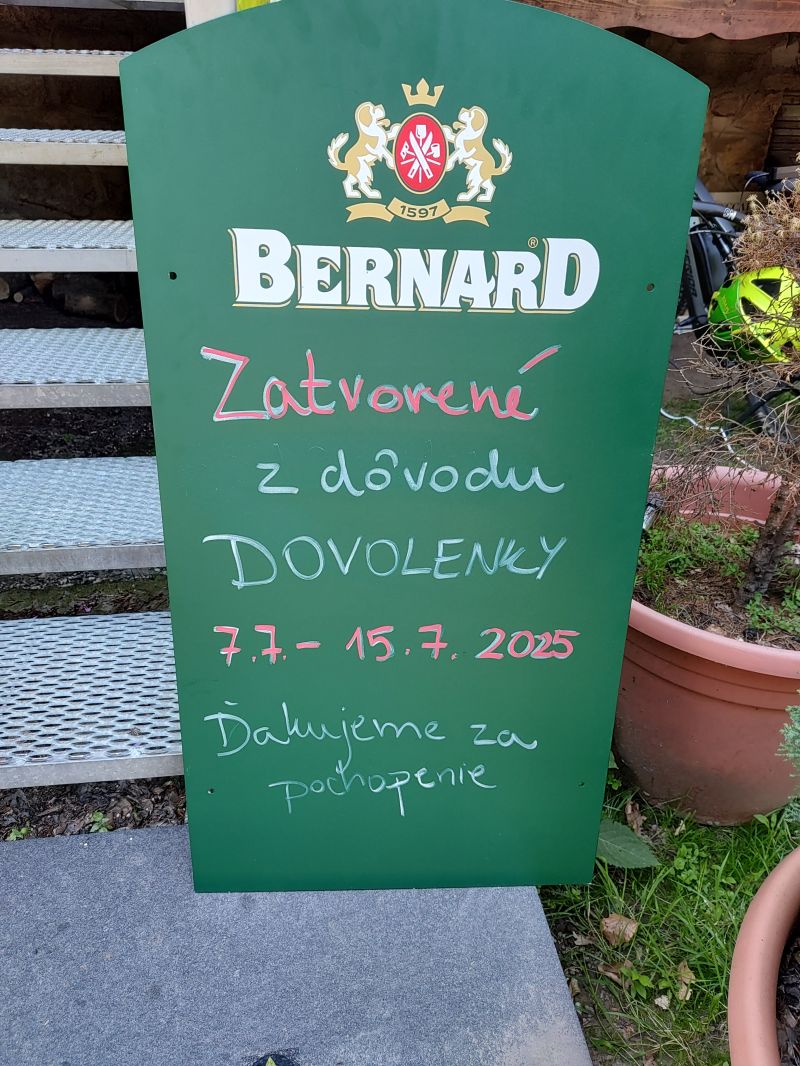 1597
BERNARD®
Zatvorené
z dôvodu
DOVOLENKY
7.7.- 15.7. 2025
Ďakujeme za
pochopenie